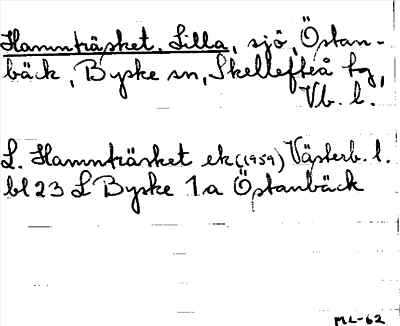 Hamnträsket, Lilla, sjö, Östan-
bäck, Byske sn, Skellefteå tg,
Vb. l.
L. Hamnträsket ek (1959) Västerb. l.
bl 23 L Byske 1a Östanbäck
ML-62